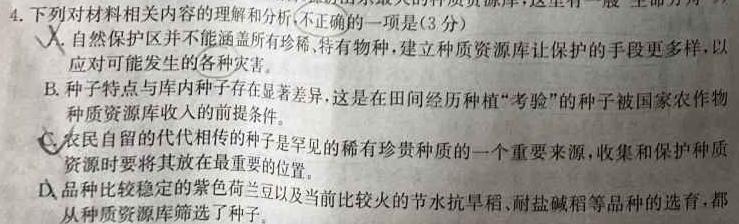 4. 下列对材料相关内容的理解和分析,不正确的一项是(3分)
A. 自然保护区并不能涵盖所有珍稀、特有物种,建立种质资源库让保护的手段更多样,以
应对可能发生的各种灾害。
B. 种子特点与库内种子存在显著差异,这是在田间经历种植“考验”的种子被国家农作物
种质资源库收入的前提条件。
C. 农民自留的代代相传的种子是罕见的稀有珍贵种质的一个重要来源,收集和保护种质
资源时要将其放在最重要的位置。
D. 品种比较稳定的紫色荷兰豆以及当前比较火的节水抗旱稻、耐盐碱稻等品种的选育,都
从种质资源库筛选了种子。